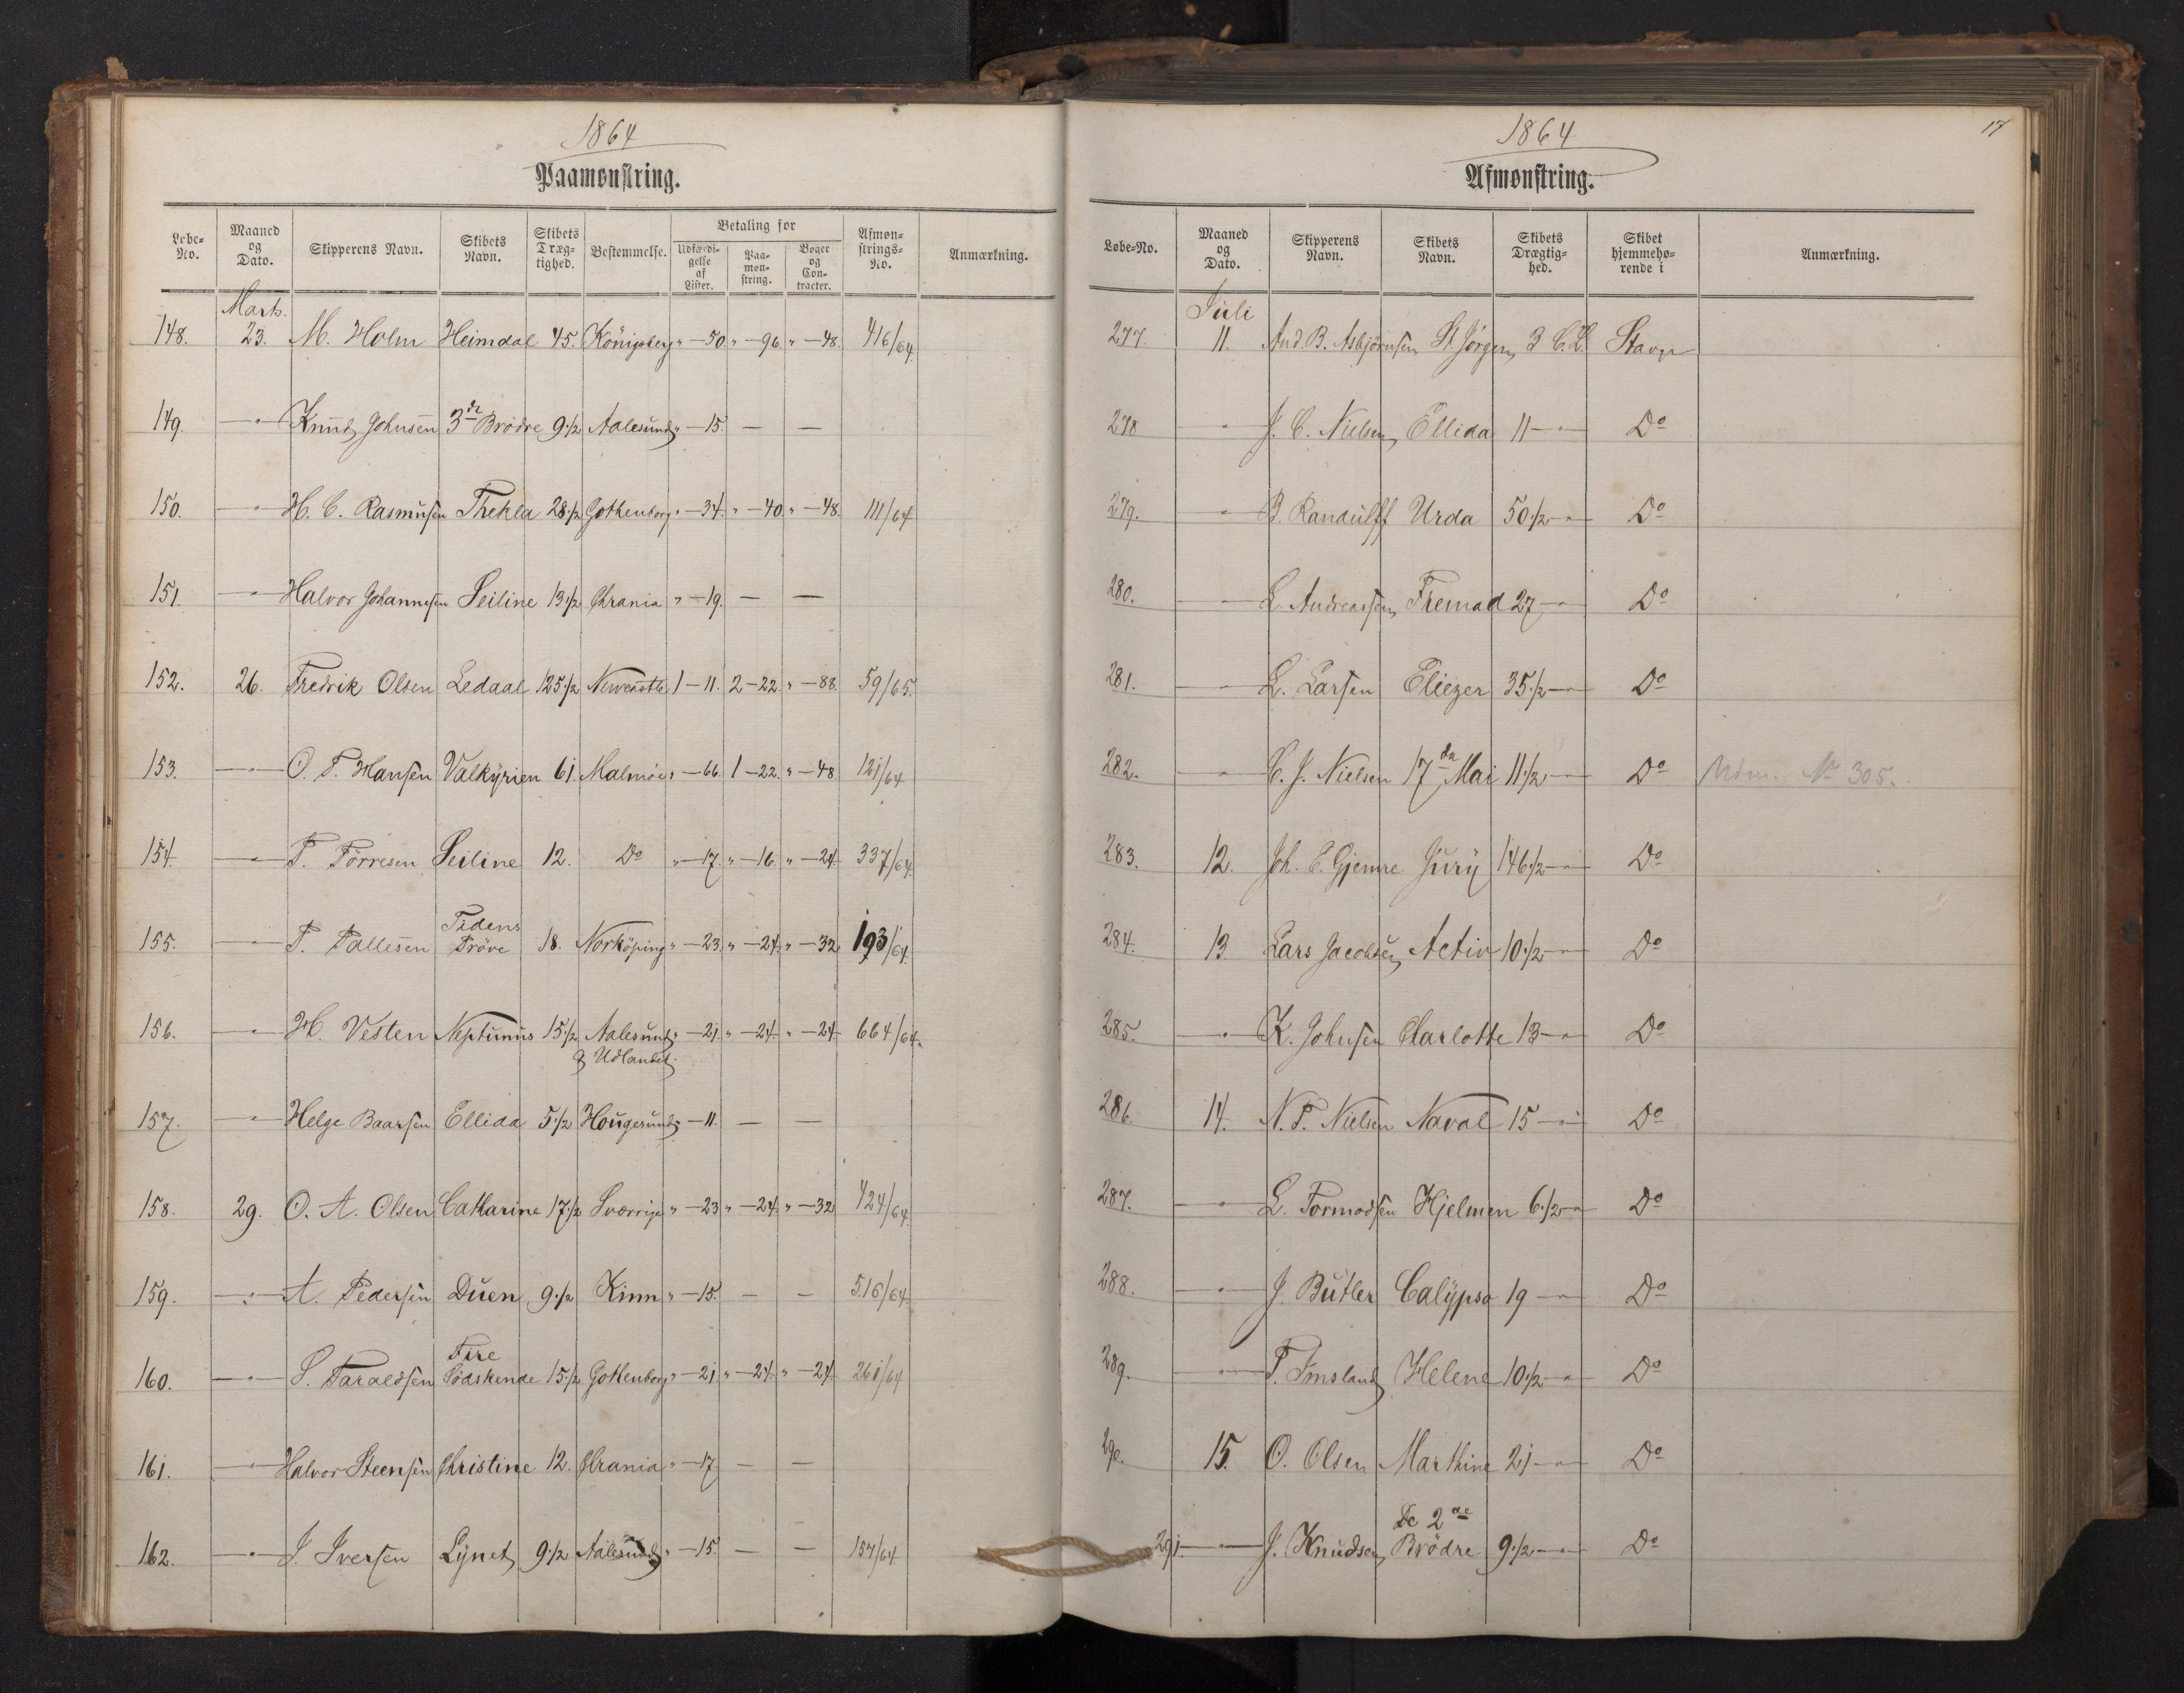 1864
Paamønstring.
Løbe-No. Maaned og Dato. Skipperens Navn. Skibets Navn. Skibets Dræg-tighed. Bestemmelse. Betaling for Udfærdi-gelse af Lister. Paa-møn-string. Bøger og Con-tracter. Afmøn-strings-No. Anmærkning.
Marts.
148. 23. M. Holm Heimdal 45. Königsberg " — 50. " — 96. " — 48. 416/64.
149. — " — Knud Johnsen 3de Brødre 9 1/2 Aalesund " — 15. — —
150. — " — H. C. Rasmusen Thekla 28 1/2 Gothenborg " — 34. " — 40. " — 48. 111/64
151. — " — Halvor Johannesen Seiline 13 1/2 Chrania " — 19. — —
152. 26. Fredrik Olsen Ledaal 125 1/2 Newcastle 1 — 11. 2 — 22. " — 88. 59/65.
153. — " — O. T. Hansen Valkÿrien 61. Malmöe " — 66. 1 — 22. " — 48. 121/64
154. — " — T. Törresen Seiline 12. Do " — 17. " — 16. " — 24. 337/64.
155. — " — T. Tallesen Tidens Pröve 18. Norköping " — 23. " — 24. " — 32. 193/64.
156. — " — H. Vesten Neptunus 15 1/2 Aalesund & Udlandet. " — 21. " — 24. " — 24. 664/64.
157. — " — Helge Baarsen Ellida 5 1/2 Hougesund " — 11. — —
158. 29. O. A. Olsen Catharine 17 1/2 Sverrige " — 23. " — 24. " — 32. 424/64.
159. — " — A. Pedersen Duen 9 1/2 Kinn " — 15. — — 516/64.
160. — " — S. Taraldsen Fire Södskende 15 1/2 Gothenborg " — 21. " — 24. " — 24. 261/64
161. — " — Halvor Steensen Christine 12. Chrania " — 17. — —
162. — " — J. Iversen Lÿnet 9 1/2 Aalesund " — 15. — — 157/64
1864
17
Afmønstring.
Løbe-No. Maaned og Dato. Skipperens Navn. Skibets Navn. Skibets Drægtig-hed. Skibet hjemmehø-rende i Anmærkning.
Juli
277. 11. And. B. Asbjørnsen St. Jørgen 3 C. L. Stavgr
278 — " — J. C. Nielsen Ellida 11 — " — Do
279. — " — B. Randulff Urda 50 1/2 — " — Do
280. — " — L. Andreassen Fremad 27 — " — Do
281. — " — L. Larsen Eliezer 35 1/2 — " — Do
282. — " — C. J. Nielsen 17de Mai 11 1/2 — " — Do No 305.
283. 12. Joh. E. Gjemre Jurÿ 146 1/2 — " — Do
284. 13. Lars Jacobsen Activ 10 1/2 — " — Do
285. — " — K. Johnsen Charlotte 13 — " — Do
286. 14. N. P. Nielsen Naval 15 — " — Do
287. — " — L. Tormodsen Hjelmen 6 1/2 — " — Do
288. — " — J. Butler Calÿpso 19 — " — Do
289. — " — T. Imsland Helene 10 1/2 — " — Do
290. 15. O. Olsen Marthine 21 — " — Do
291. — " — J. Knudsen De 2de Brödre 9 1/2 — " — Do